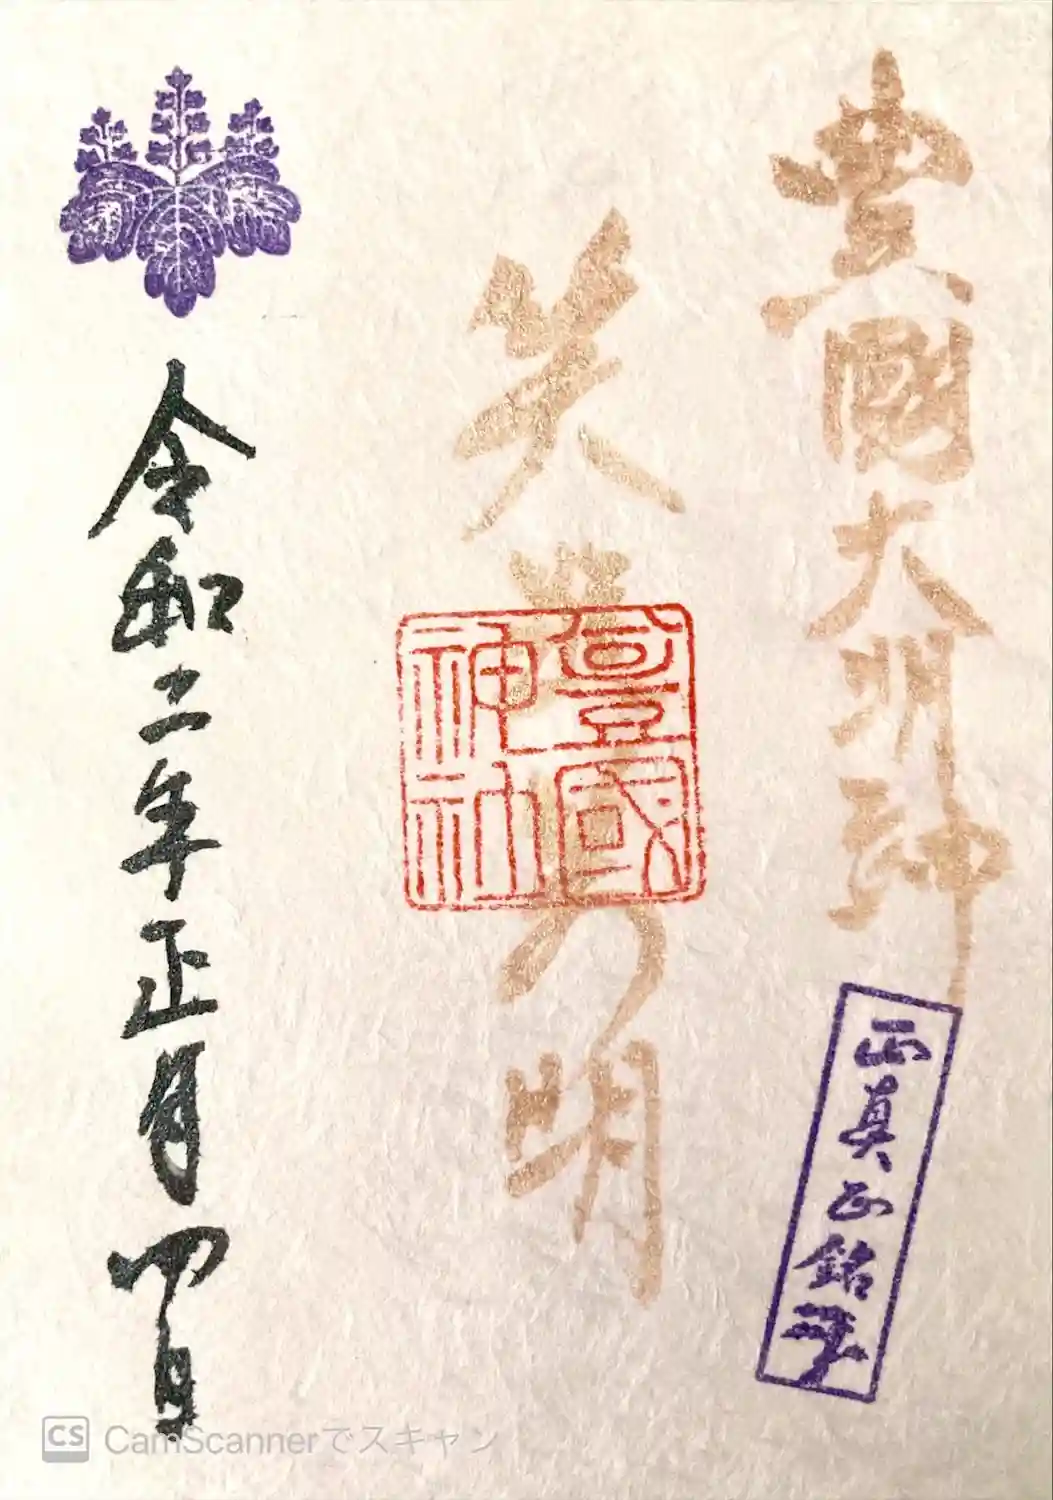 豊國大明神
正真正銘
明
豊國
神社
令和二年正月四日
CS CamScannerでスキャン